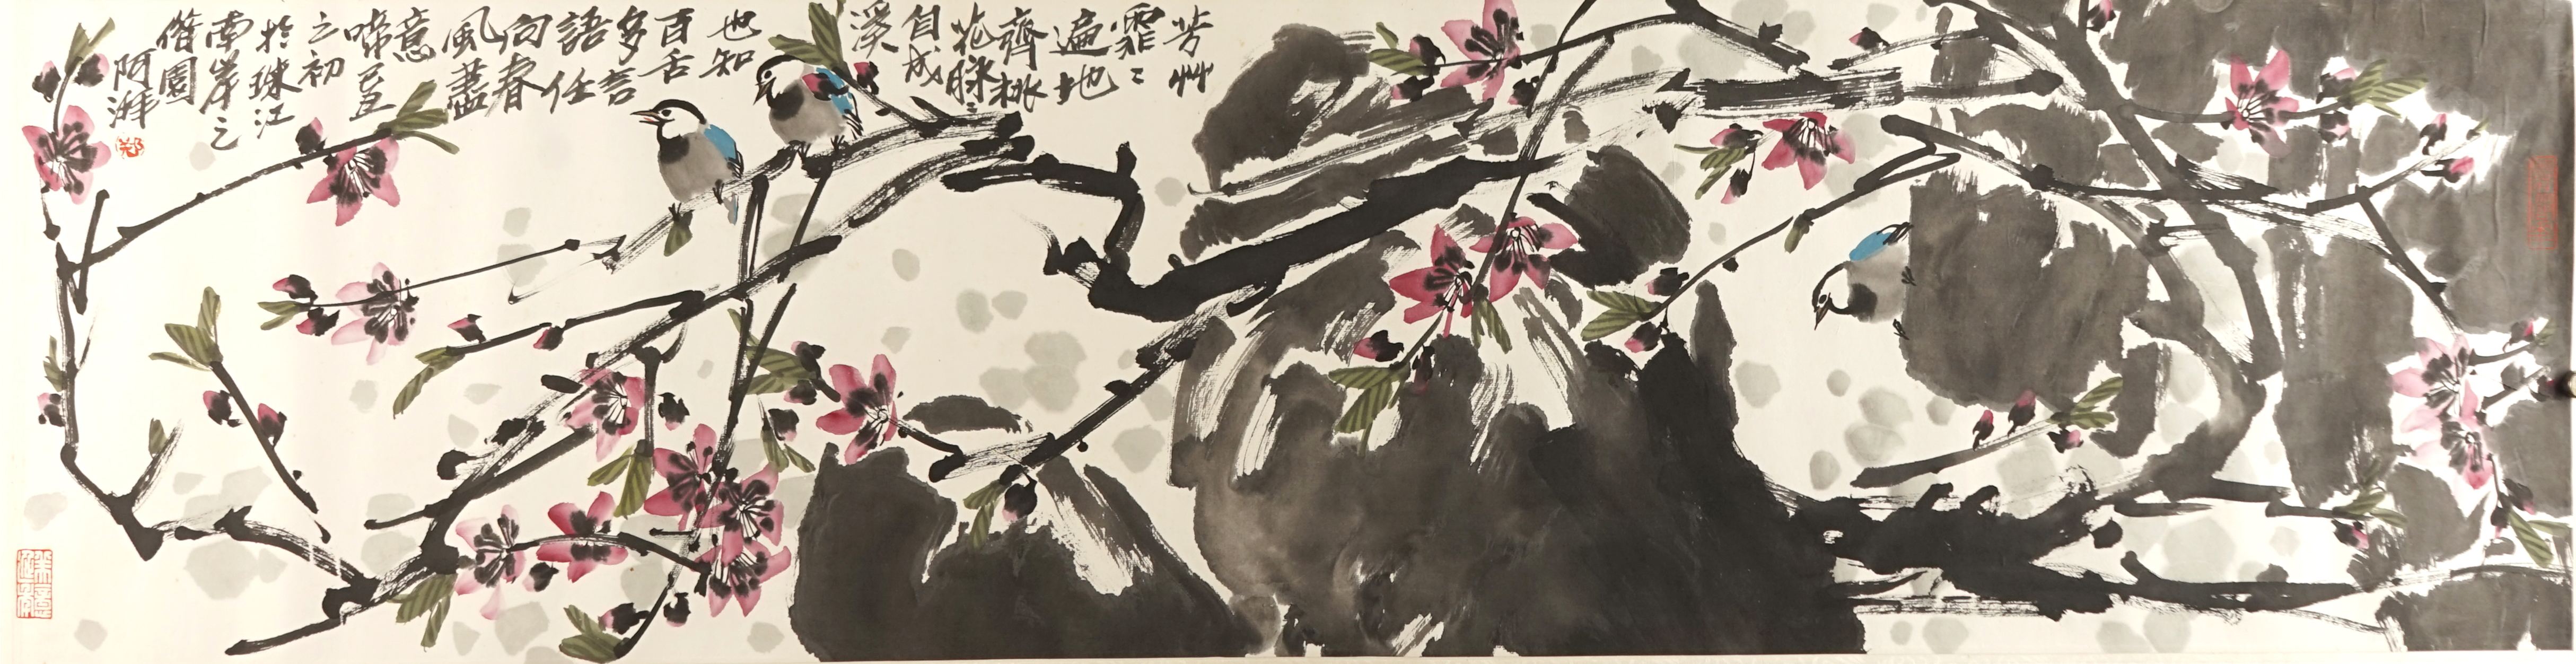 芳艸
霏〻
遍地
齊桃
花脉〻
自成
溪
也知
百舌
多言
語任
向春
風盡
意
啼己丑
之初
於珠江
南岸之
園
阿湃